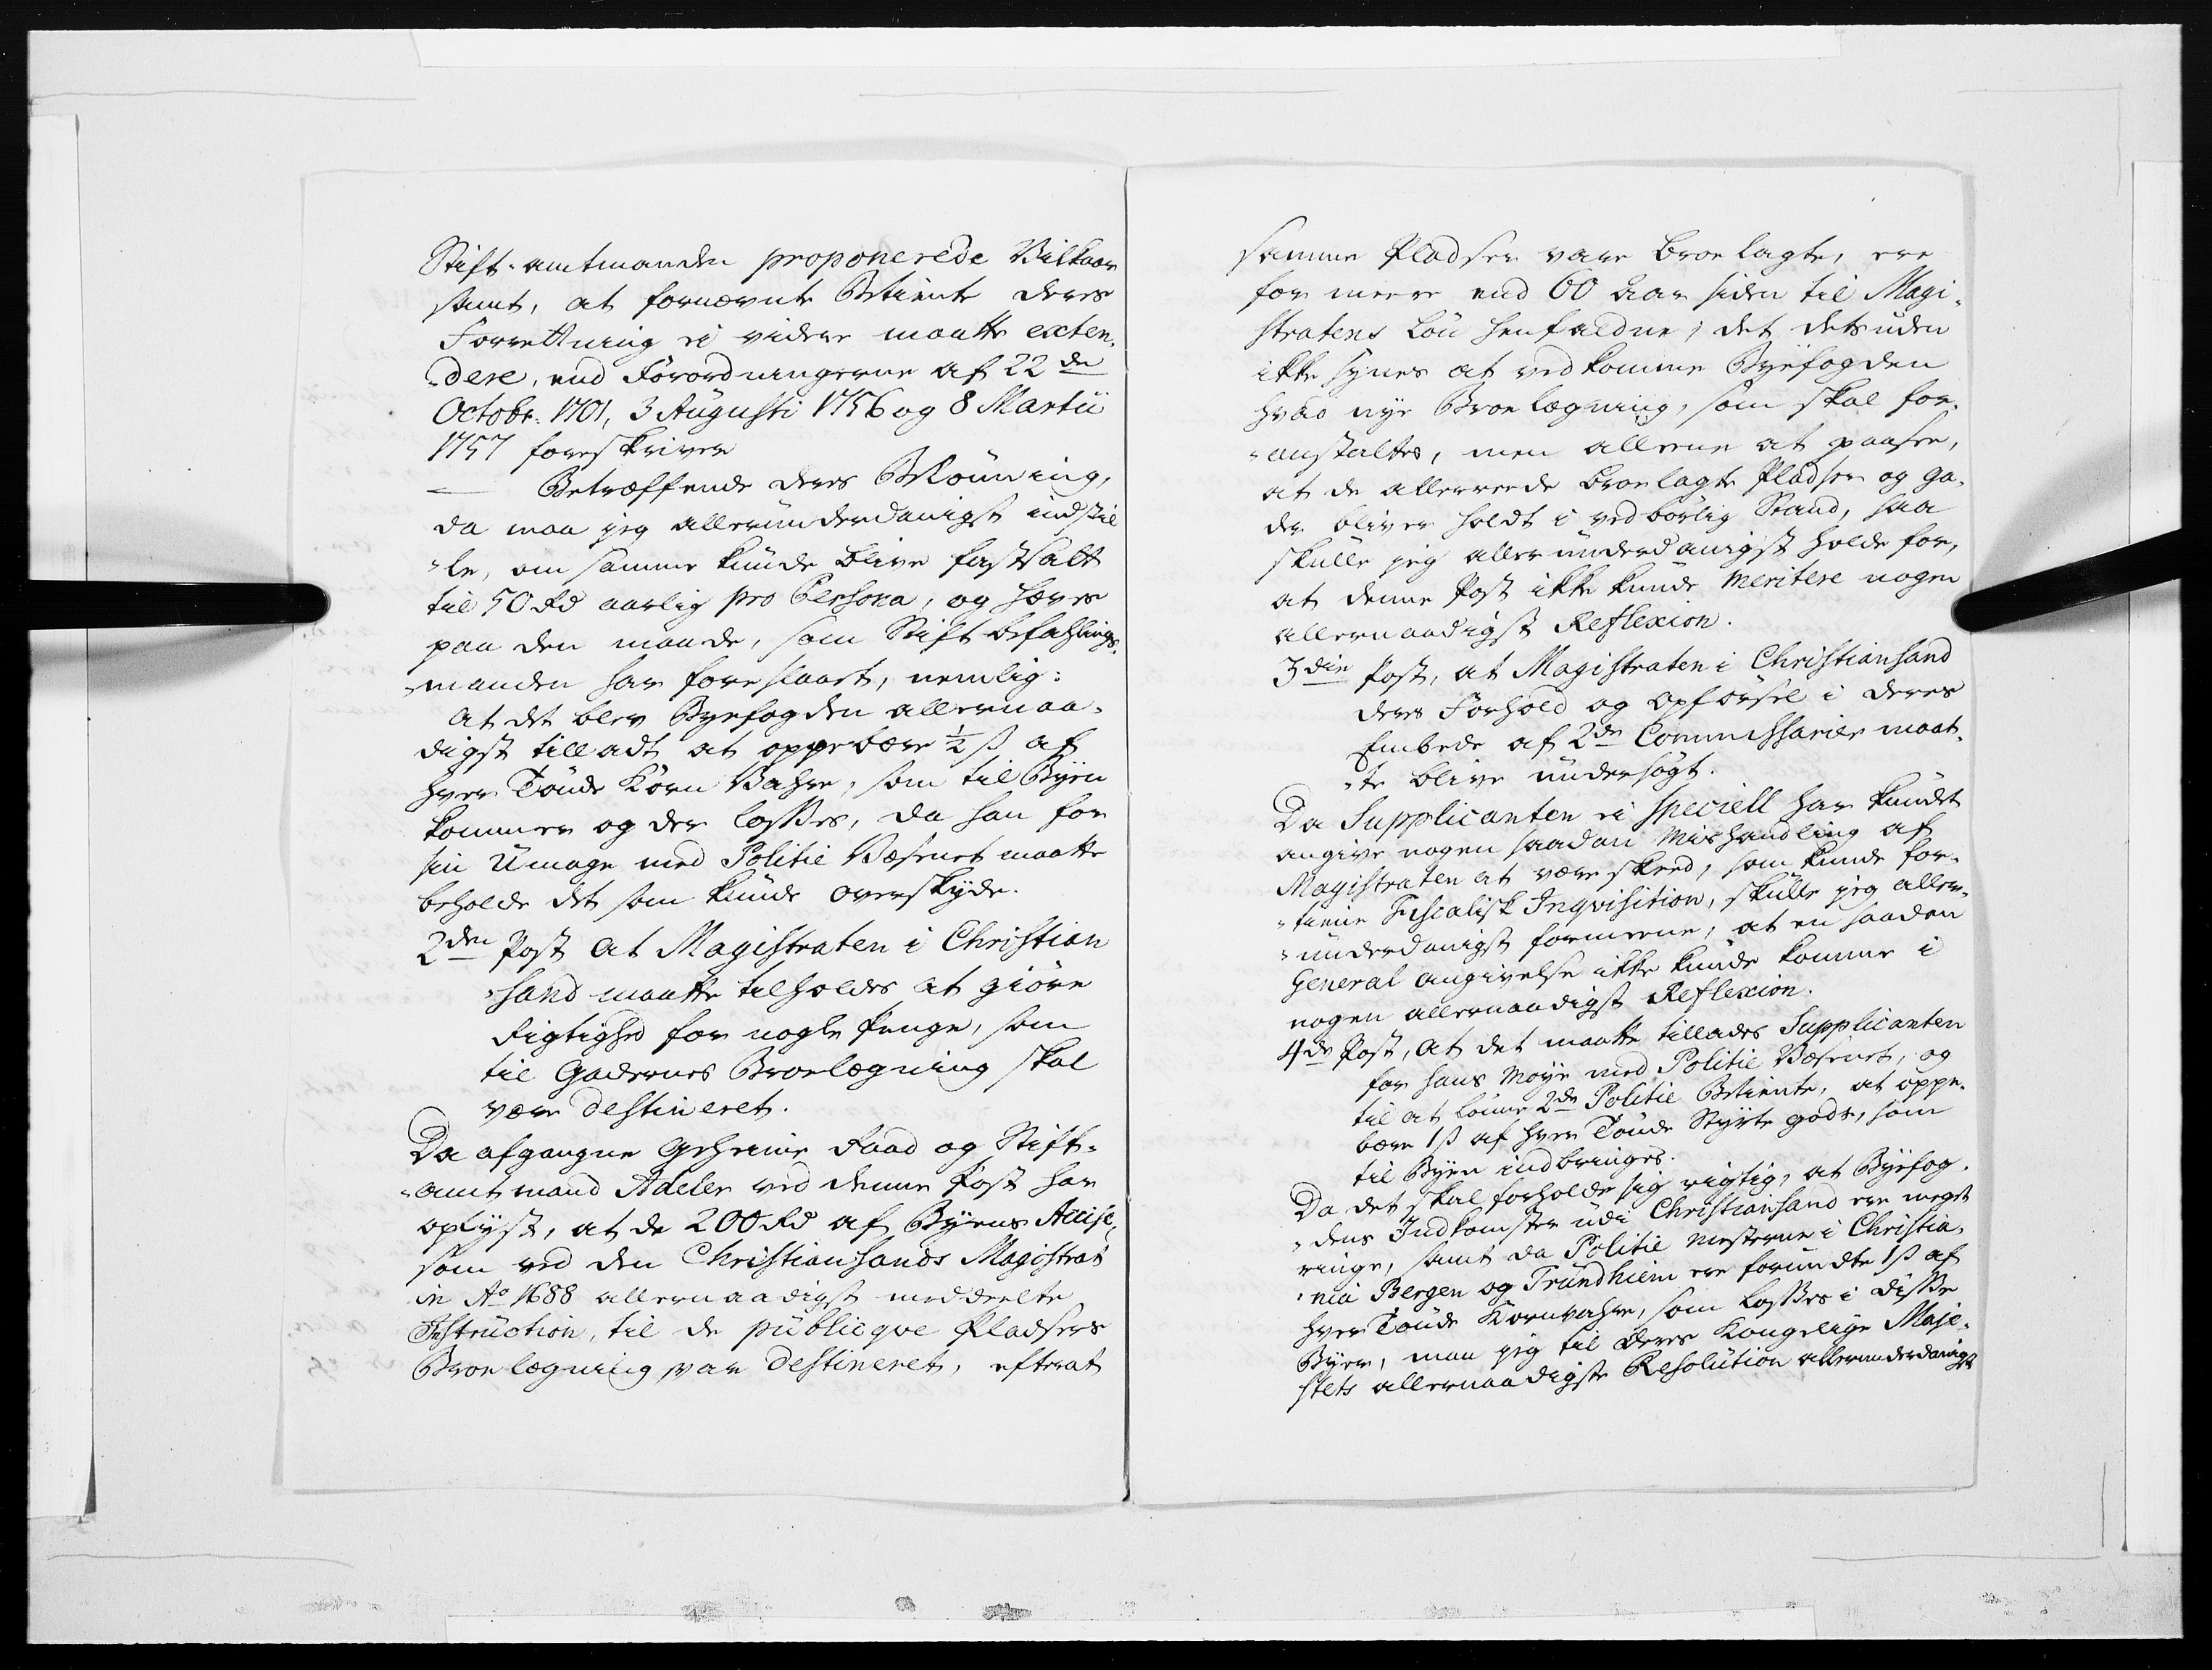 Stift-amtmanden proponerede Vilkaar
samt, at fornævnte Betiente deres
Forretning ei videre maatte exten-
-dere, end Forordningerne af 22de
Octobr: 1701, 3 Augusti 1756 og 8 Martii
1757 foreskriver
Betræffende deres Belønning,
da maa jeg allerunderdanigst indstil
-le, om samme kunde blive fastsatt
til 50 Rd aarlig pro Persona, og hæves
paa den maade, som Stiftbefahlings-
-manden har foreslaaet, nemlig:
At det blev Byefogden allernaa-
digst tilladt at oppebære ½ ß af
hver Tønde Korn Vahre, som til Byen
kommer og der losses, da han for
sin Umage med Politie Væsenet maatte
beholde det som kunde overskyde.
2den Post At Magistraten i Christian
-sand maatte tilholdes at giøre
Rigtighed for nogle Penge, som
til Gadernes Broelægning skal
være destineret.
Da afgangne Geheime Raad og Stift-
-amtmand Adeler ved denne Post har
oplyst, at de 200 Rd af Byens Accise,
som ved den Christiansands Magistrat
in Ao 1688 allernaadigst meddeelte
Instruction, til de publicqve Pladsers
Broelægning var destineret, efterat
samme Pladser vare broelagte, ere
for meere end 60 Aar siden til Magi-
stratens Løn henfaldne, det det uden
ikke synes at vedkomme Byefogden
hvad nye Broelægning, som skal for-
-anstaltes, men alleene at paasee,
at de allereede broelagte Pladser og Ga-
der bliver holdt i vedbørlig Stand, saa
skulle jeg allerunderdanigst holde for,
at denne Post ikke kunde meritere nogen
allernaadigst Reflexion.
3die Post, at Magistraten i Christiansand
deres Forhold og Opførsel i deres
Embede af 2de Commissarier maat-
-te blive undersøgt.
Da Supplicanten ei speciell har kundet
angive nogen saadan Mishandling af
Magistraten at være skeed, som kunde for-
-tiene Fiscalisk Inqvisition, skulle jeg aller-
-underdanigst formeene, at en saadan
General angivelse ikke kunde komme i
nogen allernaadigst Reflexion.
4de Post, At det maatte tillades Supplicanten
for hans Møye med Politie Væsenet, og
til at lønne 2de Politie Betiente, at oppe-
bære 1 ß af hver Tønde Styrte gods, som
til Byen indbringes.
Da det skal forholde sig rigtig, at Byefog-
-dens Indkomster udi Christiansand ere meget
ringe, samt da Politie Mesterne i Christia-
-nia Bergen og Trundhiem ere forundte 1 ß af
hver Tønde Kornvahre, som losses i disse
Byer, maa jeg til Deres Kongelige Maje-
stets allernaadigste Resolution allerunderdanigst